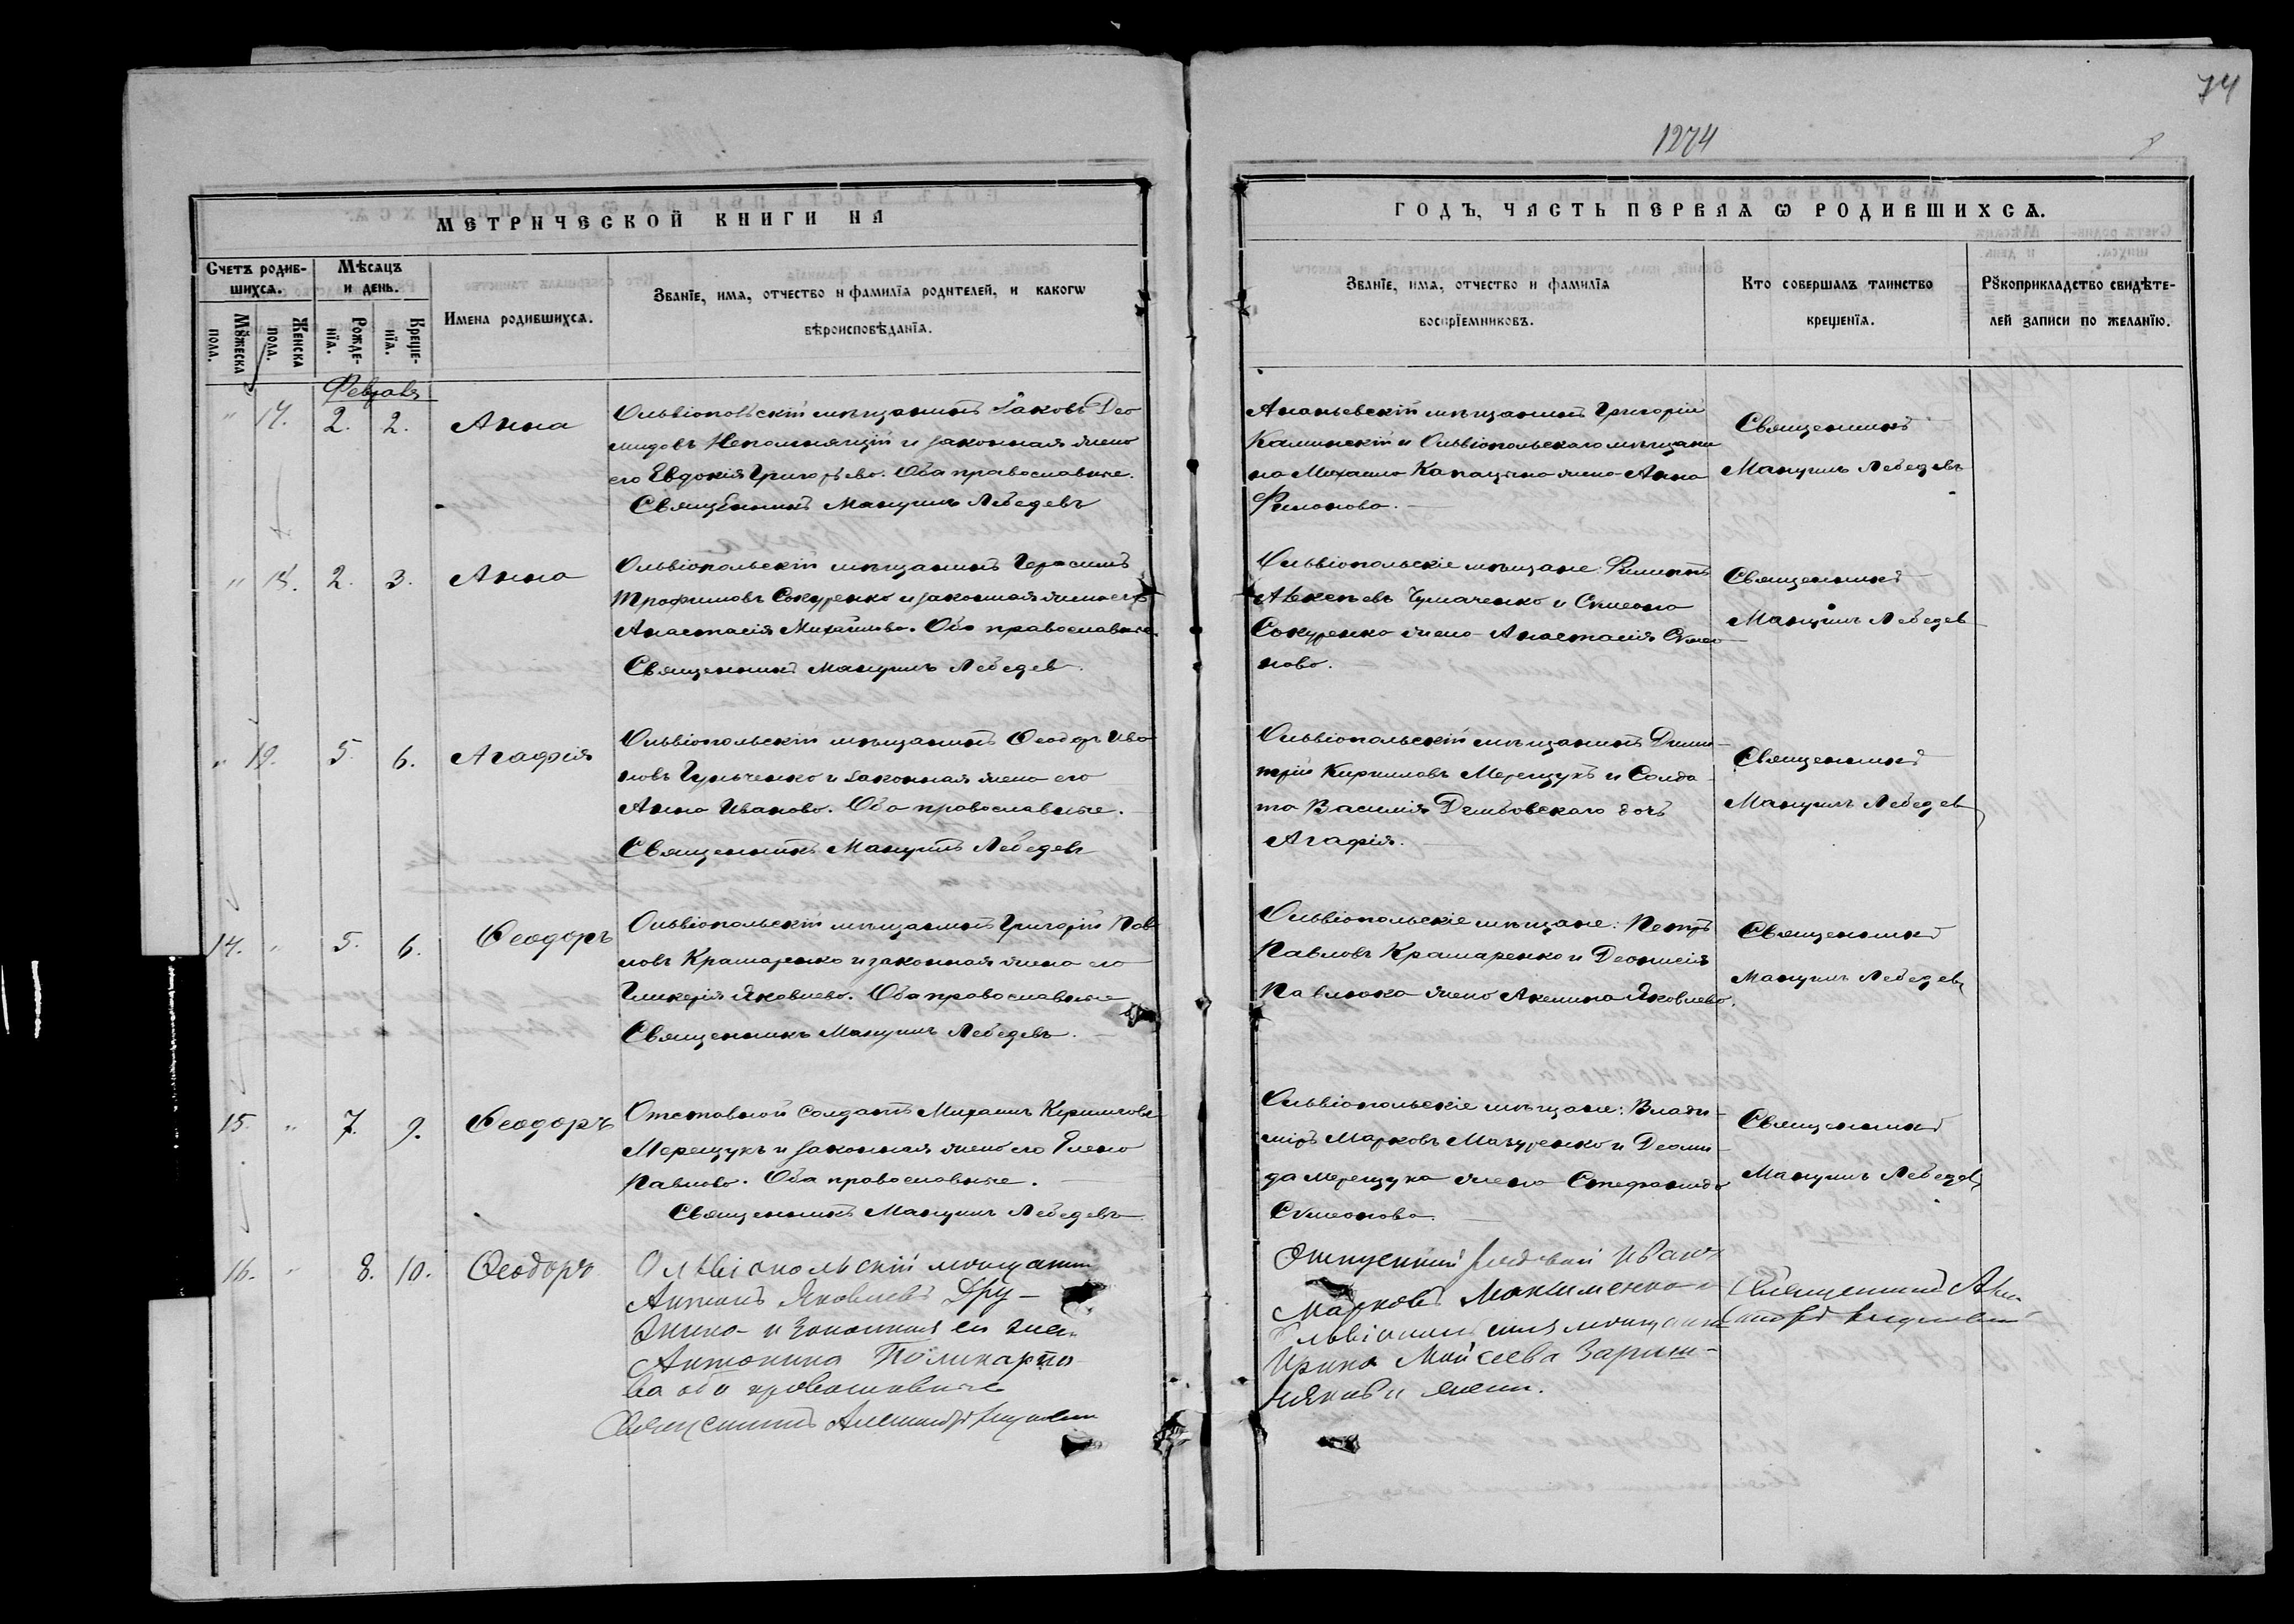 74
1274
8
МЕТРИЧЕСКОЙ КНИГИ НА
ГОДЪ, ЧАСТЬ ПЕРВАЯ Ѡ РОДИВШИХСѦ.
Счетъ родив-
шихсѧ.
Мѣсѧцъ
и день.
Мꙋжеска
пола.
Женска
пола.
Рожде-
нїѧ.
Креще-
нїѧ.
Имена родившихсѧ.
Званїе, имѧ, отчество и фамилїѧ родителей, и какогѡ
вѣроисповѣданїѧ.
Званїе, имѧ, отчество и фамилїѧ
воспрїемниковъ.
Кто совершалъ таинство
крещенїѧ.
Рꙋкоприкладство свидѣте-
лей записи по желанїю.
Февраль
" 17. 2. 2. Анна
Ольвіопольскій мѣщанинъ Іаковъ Део
мидовъ Непомнящій и законная жена
его Евдокія Григорьева. Оба православные.
Священникъ Мануилъ Лебедевъ
Ананьевскій мѣщанинъ Григорій
Калинскій и Ольвіопольскаго мѣщани
на Михаила жена Анна
Филонова.
Священникъ
Мануилъ Лебедевъ
" 18. 2. 3. Анна
Ольвіопольскій мѣщанинъ Герасимъ
Трофимовъ Сокуренко и законная жена его
Анастасія Михайлова. Оба православные.
Священникъ Мануилъ Лебедев
Ольвіопольскіе мѣщане: Филиппъ
Алексѣевъ Чумаченко и Сімеона
Сокуренко жена Анастасія Сімео
нова.
Священникъ
Мануилъ Лебедев
" 19. 5. 6. Агафія
Ольвіопольскій мѣщанинъ Ѳеодоръ Ива
новъ Гульченко и законная жена его
Анна Иванова. Оба православные.
Священникъ Мануилъ Лебедев
Ольвіопольскій мѣщанинъ Дими-
трій Кирилловъ Мерещукъ и Солда-
та Василія дочь
Агафія.
Священникъ
Мануилъ Лебедев
14. " 5. 6. Ѳеодоръ
Ольвіопольскій мѣщанинъ Григорій Пав
ловъ Крамаренко и законная жена его
Гликерія Яковлева. Оба православные
Священникъ Мануилъ Лебедевъ.
Ольвіопольскіе мѣщане: Петръ
Павловъ Крамаренко и Деонисія
Павлюка жена Акелина Яковлева.
Священникъ
Мануилъ Лебедев
15. " 7. 9. Ѳеодоръ
Отставной солдатъ Михаилъ Кирилловъ
Мерещукъ и законная жена его Елена
Павлова. Оба православные.
Священникъ Мануилъ Лебедевъ
Ольвіопольскіе мѣщане: Влади-
міръ Марковъ Мазуренко и Деоми-
да Мерещука жена Стефанида
Сімеонова.
Священникъ
Мануилъ Лебедев
16. " 8. 10. Ѳеодоръ
Ольвіопольскій мѣщанин
Антонъ Яковлевъ Дру-
и законная его жена
Антонина Поликарпо-
ва оба православные
Священникъ Александръ
Отпускной рядовой Иванъ
Марковъ Максименко и
мѣщанина
Ирина Моисеева
жена.
Священникъ Алек